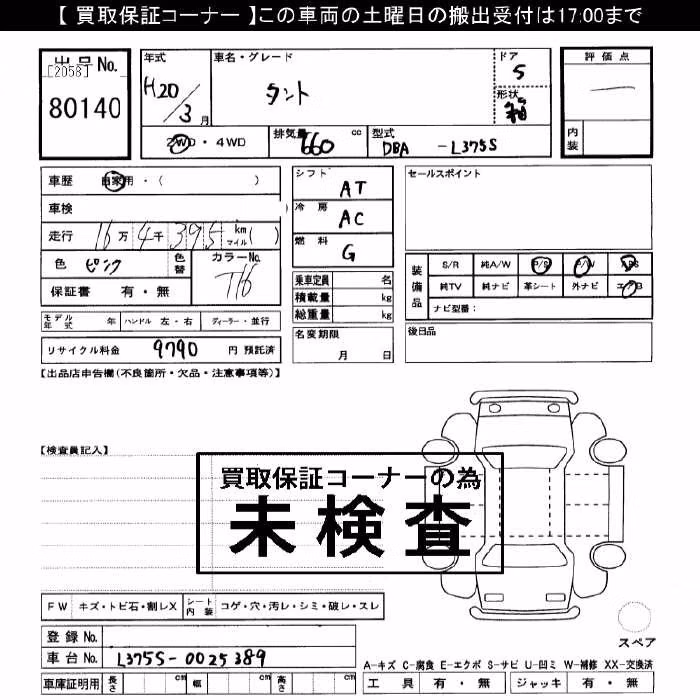 【 買取保証コーナー 】この車両の土曜日の搬出受付は17:00まで
出品No.
[2058]
80140
年式
H20/3月
車名・グレード
タント
ドア
5
形状
箱
評価点
内装
2WD・4WD
排気量 660 cc
型式 DBA -L375S
車歴 自家用・( )
車検
走行 16万4千395 km マイル( )
色 ピンク
色替
カラーNo. T16
保証書 有・無
シフト AT
冷房 AC
燃料 G
セールスポイント
乗車定員 名
積載量 kg
総重量 kg
装備品
S/R 純A/W P/S P/W ABS
純TV 純ナビ 革シート 外ナビ エアB
ナビ型番:
モデル年式 年 ハンドル 左・右 ディーラー・並行
名変期限 月 日
後日品
リサイクル料金 9790 円 預託済
【出品店申告欄(不良箇所・欠品・注意事項等)】
【検査員記入】
買取保証コーナーの為
未検査
FW キズ・トビ石・割レX シート内装 コゲ・穴・汚レ・シミ・破レ・スレ
スペア
登録No.
車台No. L375S-0025389
A-キズ C-腐食 E-エクボ S-サビ U-凹ミ W-補修 XX-交換済
車庫証明用 長さ cm 幅 cm 高さ cm
工具 有・無 ジャッキ 有・無